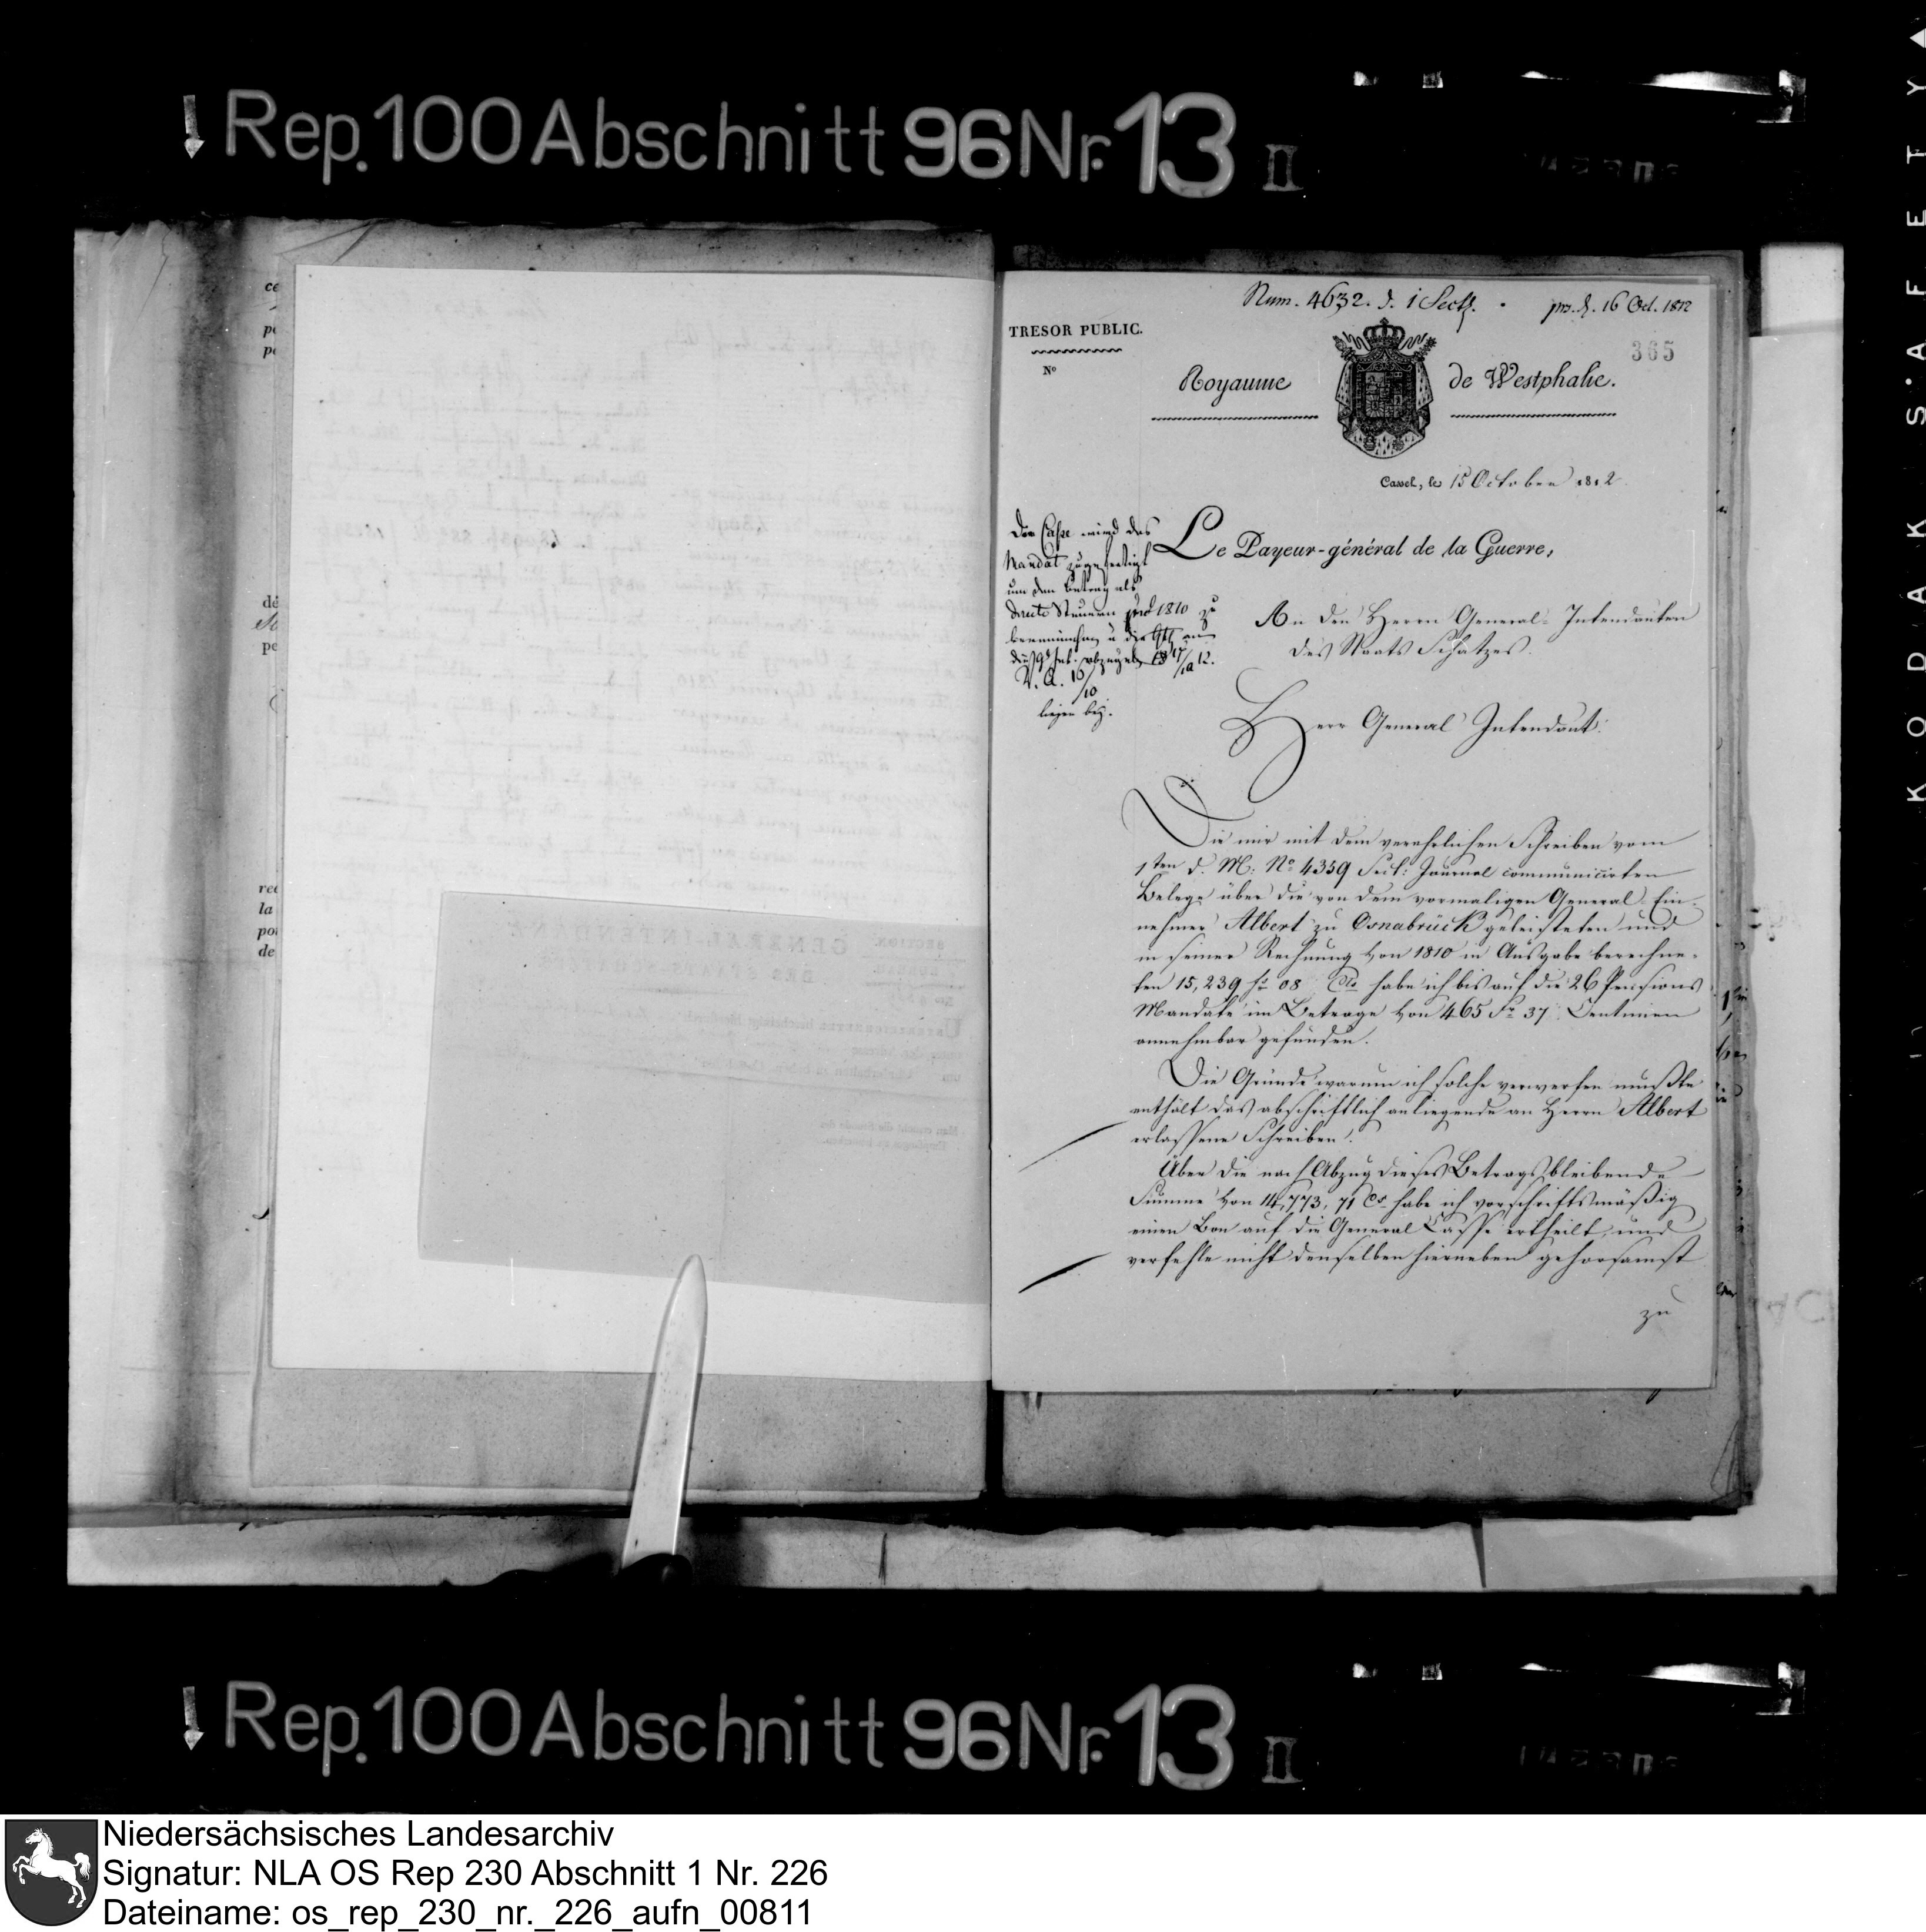 Rep. 100 Abschnitt 96 Nr. 13 II
Num. 4632. d. 1 Sect.
prs. d. 16 Oct. 1812
TRESOR PUBLIC.
365
No
Royaume de Westphalie.
Cassel, le 15 October 1812.
Der Casse wird das
Mandat zugefertigt
um den Betrag als
directe Steuern pro 1810 zu
vereinnahmen u
V. A. 16/10
liegen bey.
Le Payeur-général de la Guerre,
An den Herrn General-Intendanten
des Staats Schatzes.
Herr General Intendant.
Die mir mit dem verehrlichen Schreiben vom
1ten d. M: No 4359 Sect: Journal communicirten
Belege über die von dem vormaligen General-Ein-
nehmer Albert zu Osnabrück geleisteten und
in seiner Rechnung von 1810 in Ausgabe berechne-
ten 15,239 fs 08 Cts habe ich bis auf die 26 Pensions
Mandate im Betrage von 465 Fr 37 Centimen
annehmbar gefunden.
Die Gründe warum ich solche verwerfen mußte
enthält das abschriftlich anliegende an Herrn Albert
erlassene Schreiben.
Über die nach Abzug dieses Betrags bleibende
Summe von 14,773, 71 Cs habe ich vorschriftsmäßig
einen Bon auf die General Casse ertheilt, und
verfehle nicht denselben hierneben gehorsamst
zu
Rep. 100 Abschnitt 96 Nr. 13 II
KODAK SAFETY
Niedersächsisches Landesarchiv
Signatur: NLA OS Rep 230 Abschnitt 1 Nr. 226
Dateiname: os_rep_230_nr._226_aufn_00811